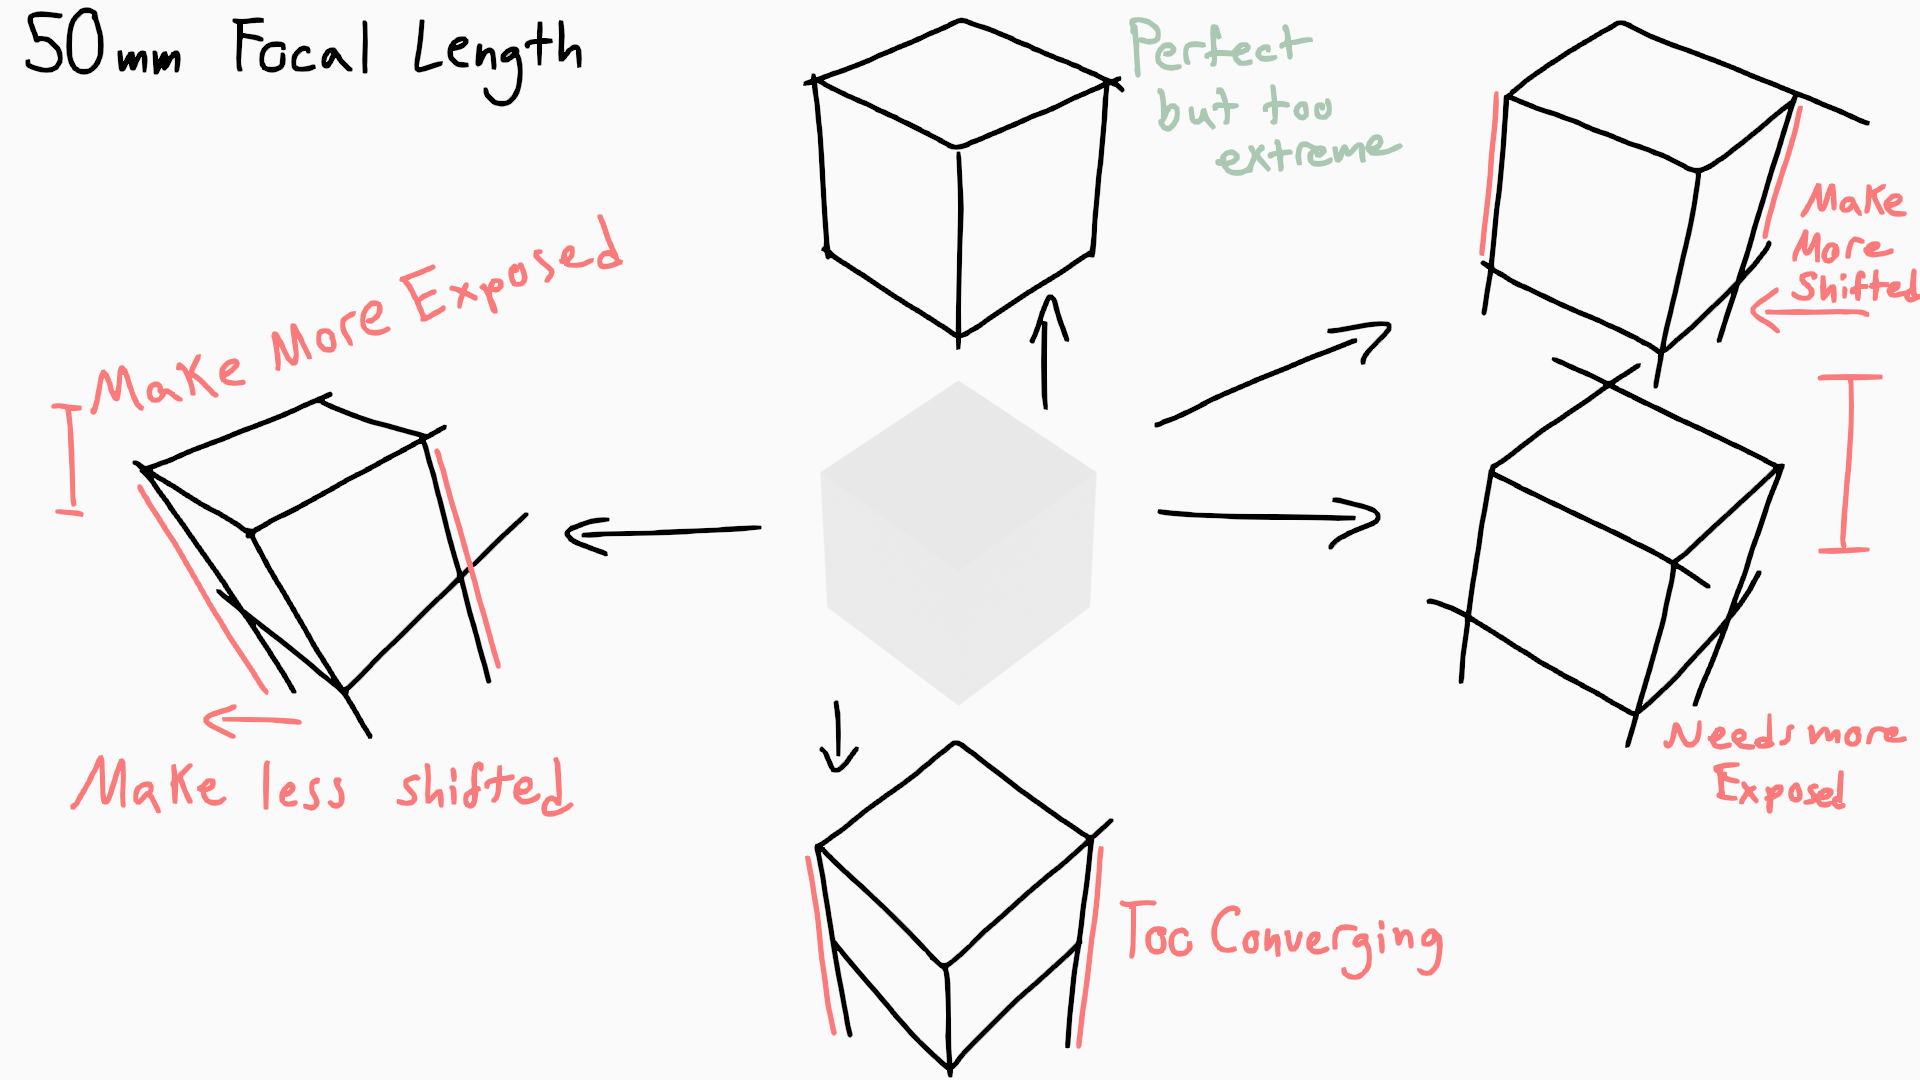 50mm Focal Length
Perfect
but too
extreme
Make
More
Shifted
Make More Exposed
Make less shifted
Needs more
Exposed
Too Converging